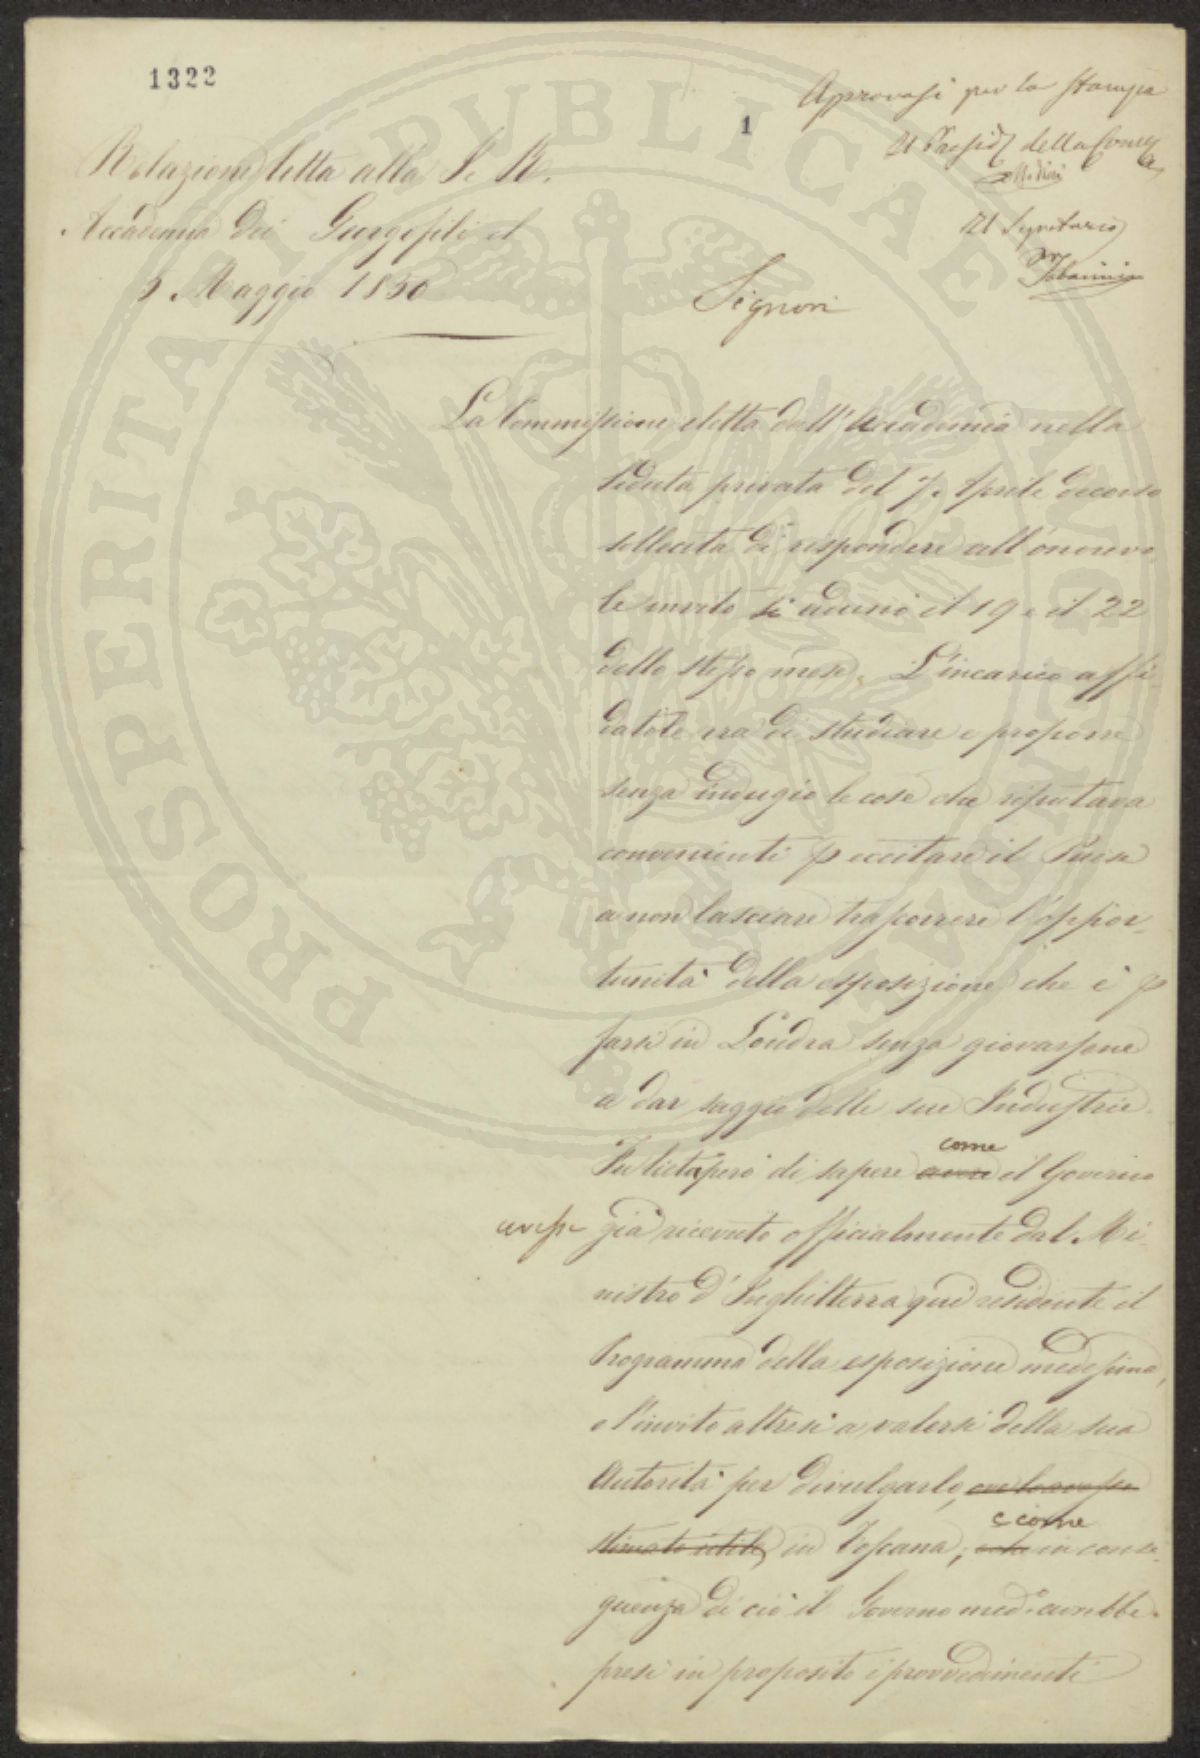 1322
1
Approvasi per la Stampa
Il Presid della
Il Segretario
Relazione letta alla I. R.
Accademia dei Georgofili il
5 Maggio 1850
Signori
La Commissione eletta dall'Accademia nella
seduta privata del 7. Aprile decorso
sollecita di rispondere all'onorevo-
le invito si adunò il 19 e il 22
dello stesso mese. L'incarico affi-
datole era di studiare e proporre
senza indugio le cose che reputava
convenienti p eccitare il Paese
a non lasciare trascorrere l'oppor-
tunità della esposizione che è p
farsi in Londra senza giovarsene
a dar saggio delle sue Industrie.
come
Fu lieta però di sapere avere il Governo
avesse già ricevuto officialmente dal Mi-
nistro d'Inghilterra qui residente il
Programma della esposizione medesima,
e l'invito altresì a valersi della sua
Autorità per divulgarlo, ove lo avesse
e come
stimato utile, in Toscana, in conse-
guenza di ciò il Governo med.o avrebbe
presi in proposito i provvedimenti
PROSPERITATI PUBLICAE AUGENDAE